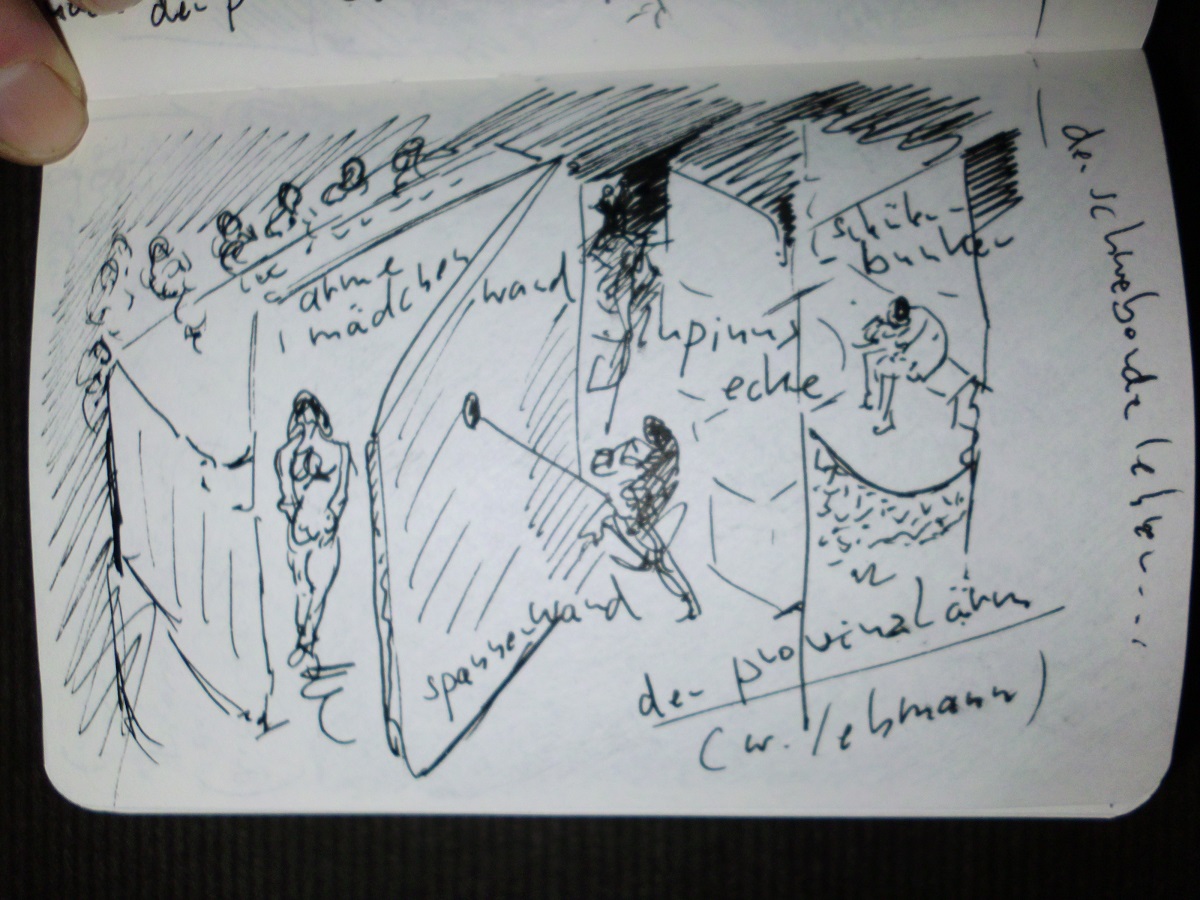 der p
arme
mädchen
wand
lupinus
ecke
schüler-
bunker
spanner wand
der provinzlärm
(w. lehmann)
der schwebende lehrer...